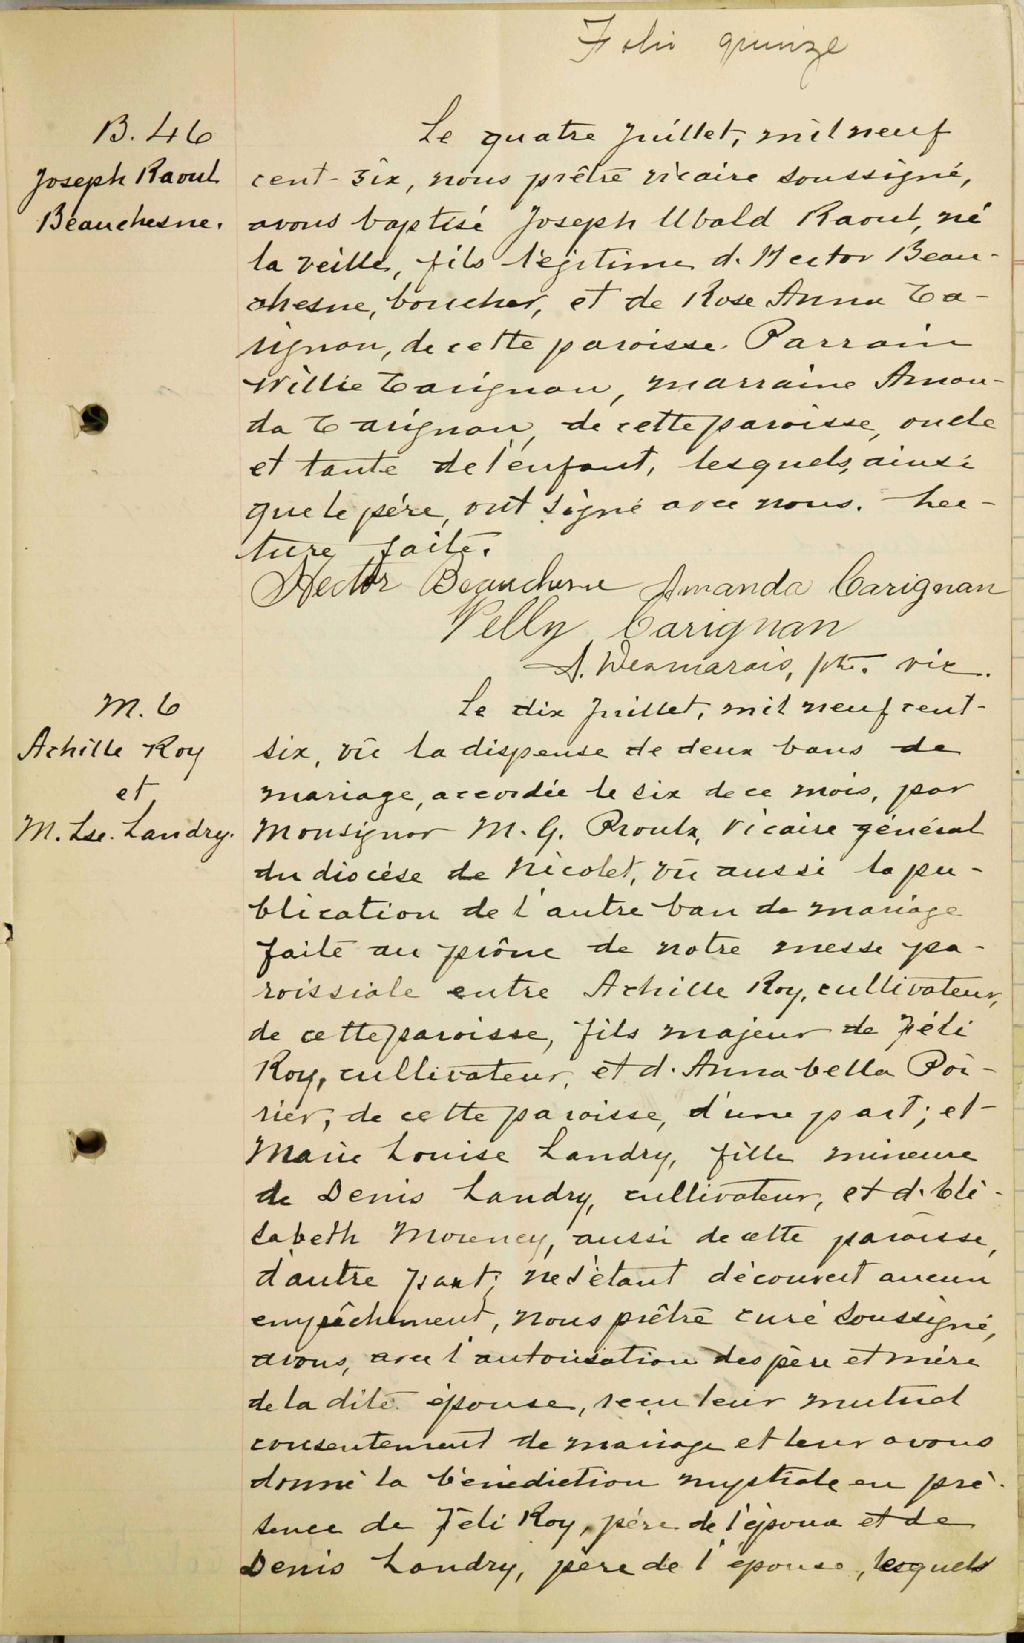 Folio quinze
B. 46
Joseph Raoul
Beauchesne.
Le quatre juillet, mil neuf
cent-six, nous prêtre vicaire soussigné,
avons baptisé Joseph Ubald Raoul, né
la veille, fils légitime d. Hector Beau-
chesne, boucher, et de Rose Anna Ca-
rignan, de cette paroisse. Parrain
Willie Carignan, marraine Aman-
da Carignan, de cette paroisse, oncle
et tante de l'enfant, lesquels, ainsi
que le père, ont signé avec nous. Lec-
ture faite.
Hector Beauchesne Amanda Carignan
Velly Carignan
A. Desmarais, ptr. vic.
M. 6
Achille Roy
et
M. Lse. Landry.
Le dix juillet, mil neuf cent-
six, vû la dispense de deux bans de
mariage, accordée le six de ce mois, par
Monsignor M. G. Proulx, Vicaire général
du diocèse de Nicolet, vû aussi la pu-
blication de l'autre ban de mariage
faite au prône de notre messe pa-
roissiale entre Achille Roy, cultivateur,
de cette paroisse, fils majeur de Féli
Roy, cultivateur, et d. Annabella Poi-
rier, de cette paroisse, d'une part; et
Marie Louise Landry, fille mineure
de Denis Landry, cultivateur, et d. Eli-
sabeth Mourency, aussi de cette paroisse,
d'autre part; ne s'étant découvert aucun
empêchement, nous prêtre curé soussigné,
avons, avec l'autorisation des père et mère
de la dite épouse, reçu leur mutuel
consentement de mariage et leur avons
donné la bénédiction nuptiale en pré-
sence de Féli Roy, père de l'époux et de
Denis Landry, père de l'épouse, lesquels